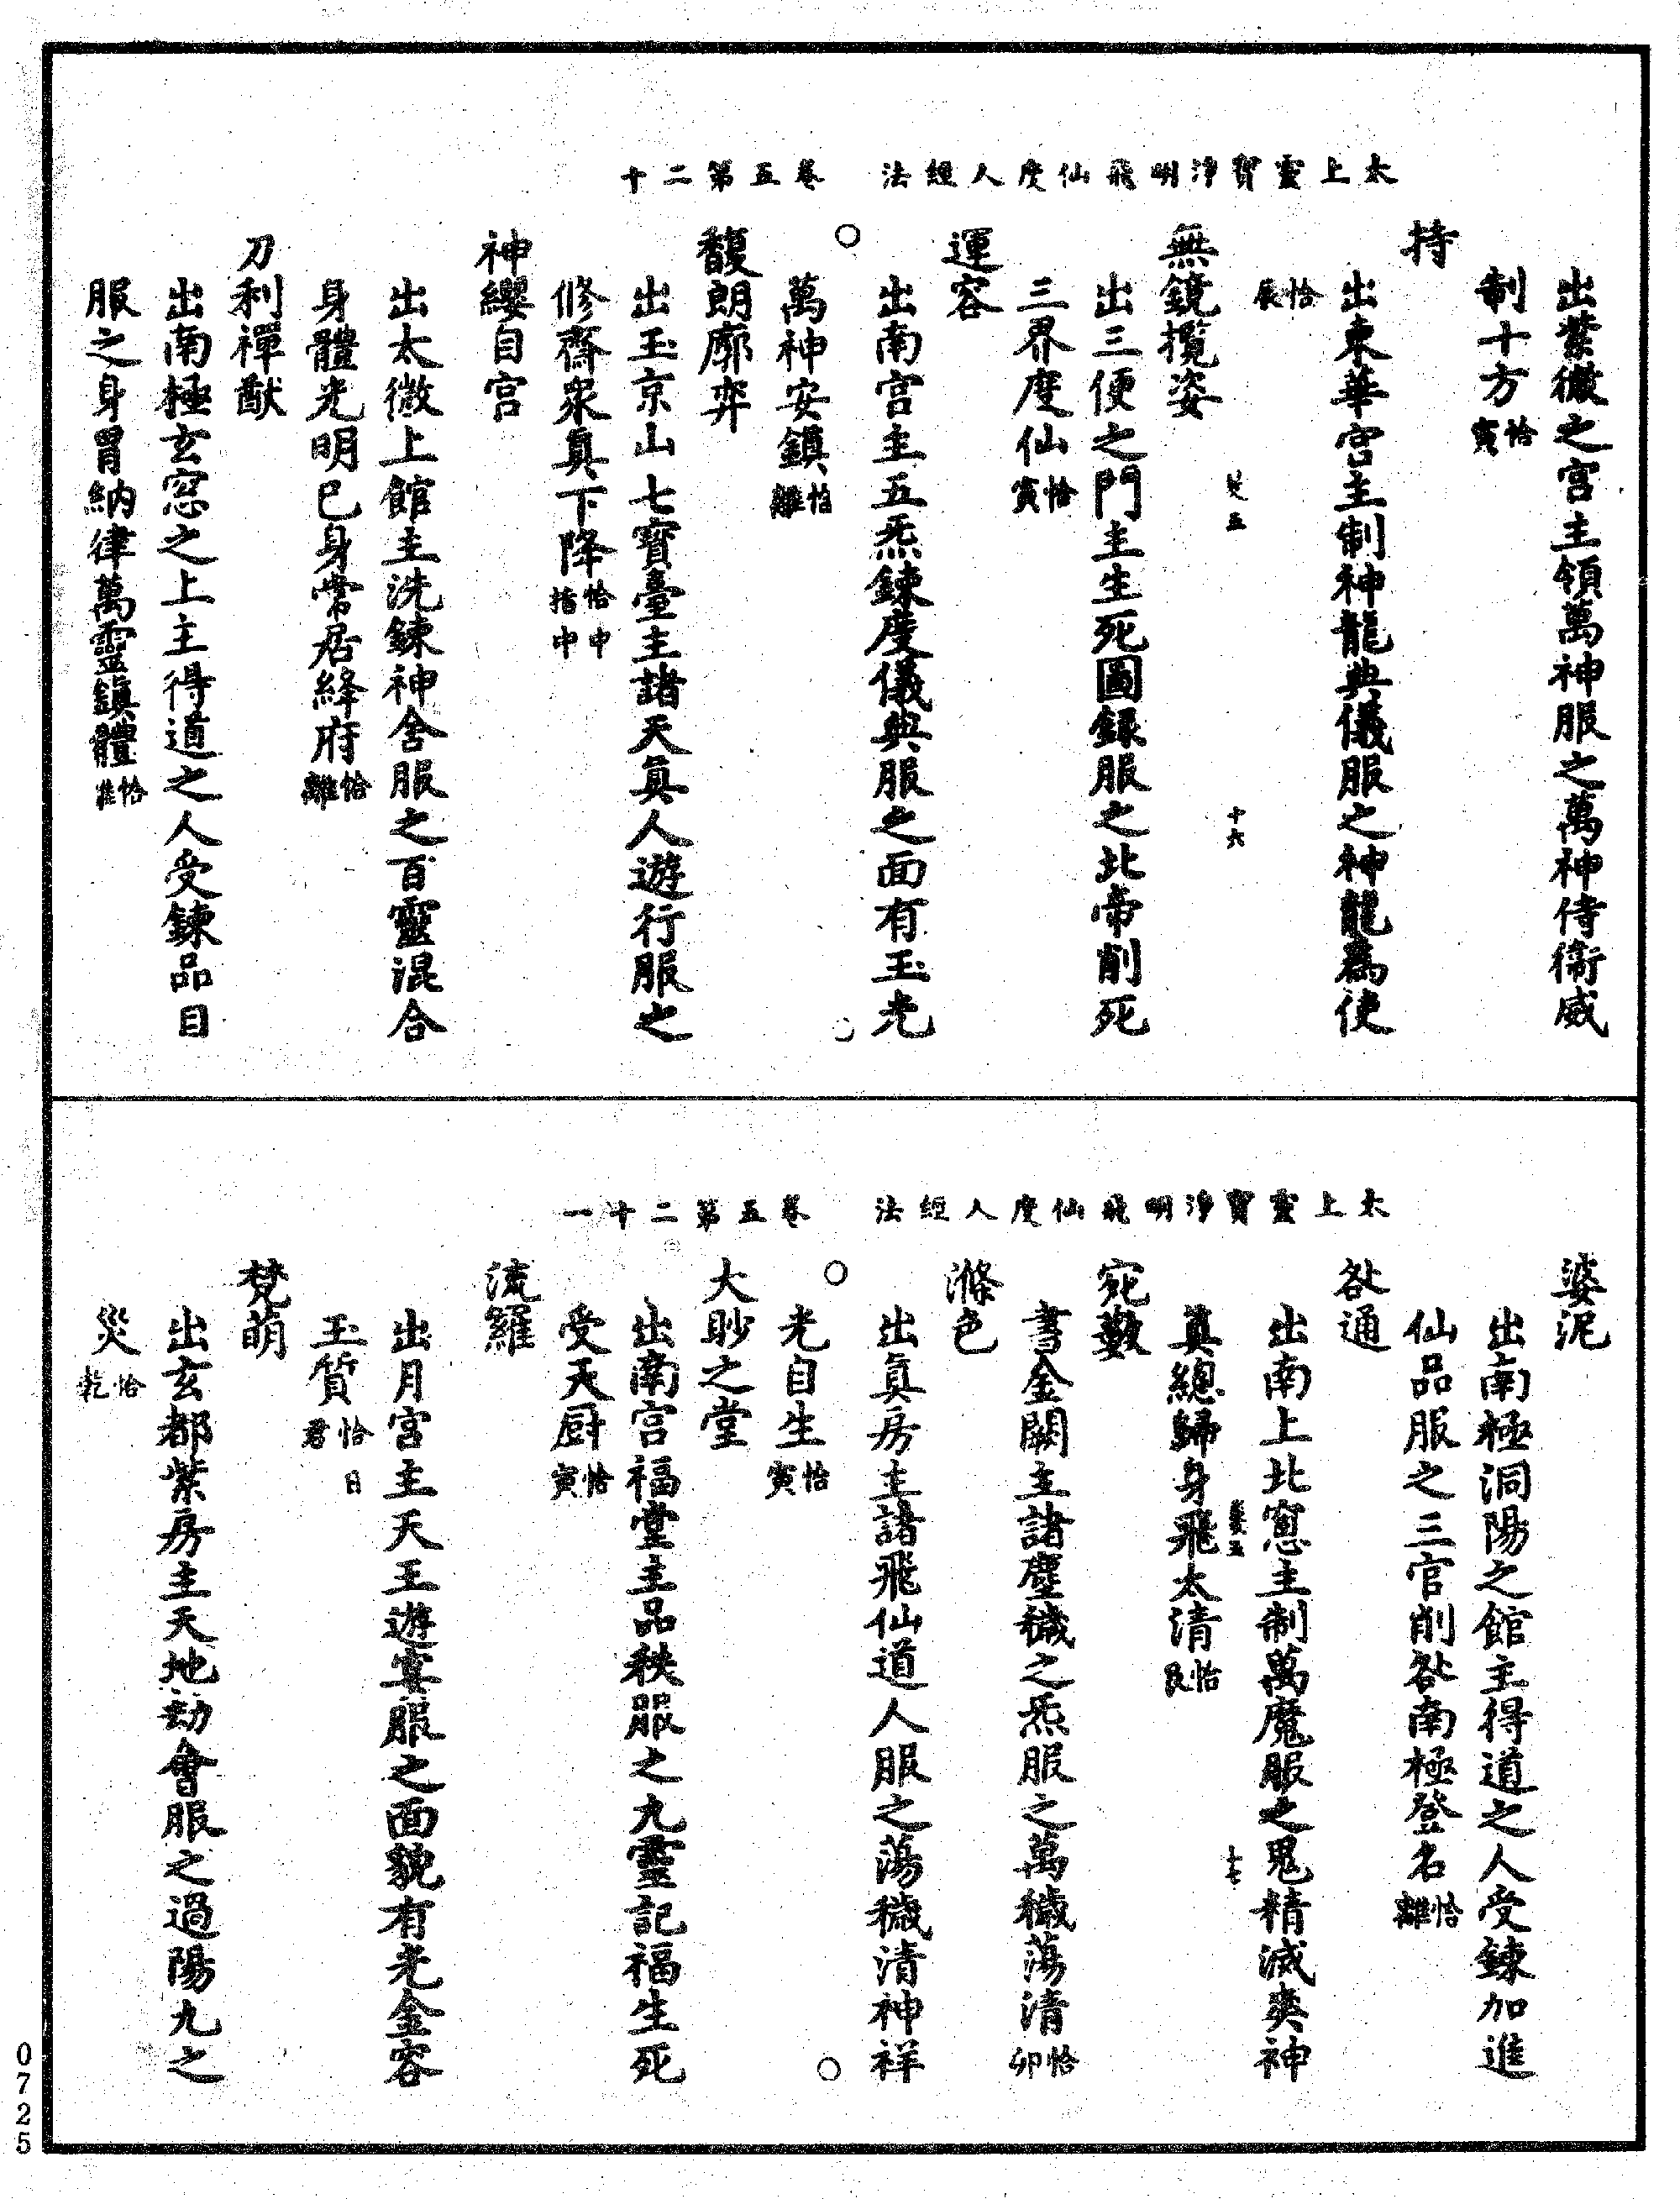 太上靈寶淨明飛仙度人經法 卷五第二十
出紫微之宮主領萬神服之萬神侍衛威
制十方恰寅
持
出東華宮主制神龍典儀服之神龍爲使
恰辰
無鏡攬姿
出三便之門主生死圖錄服之北帝削死
三界度仙恰寅
運容
出南宮主五炁鍊度儀典服之面有玉光
萬神安鎮恰離
馥朗廓弈
出玉京山七寶臺主諸天真人遊行服之
修齋衆真下降恰中指中
神纓自宮
出太微上館主洗鍊神舍服之百靈混合
身體光明已身常居絳府恰離
刀利禪猷
出南極玄窓之上主得道之人受鍊品目
服之身胃納律萬靈鎮體恰離
太上靈寶淨明飛仙度人經法 卷五第二十一
婆泥
出南極洞陽之館主得道之人受鍊加進
仙品服之三官削咎南極登名恰離
咎通
出南上北窓主制萬魔服之鬼精滅爽神
真總歸身飛太清恰艮
宛藪
書金闕主諸塵穢之炁服之萬穢蕩清恰卯
滌色
出真房主諸飛仙道人服之蕩穢清神祥
光自生恰寅
大眇之堂
出南宮福堂主品秩服之九靈記福生死
受天厨恰寅
流羅
出月宮主天王遊宴服之面貌有光金容
玉質恰君日
梵萌
出玄都紫房主天地劫會服之過陽九之
災恰乾
0725